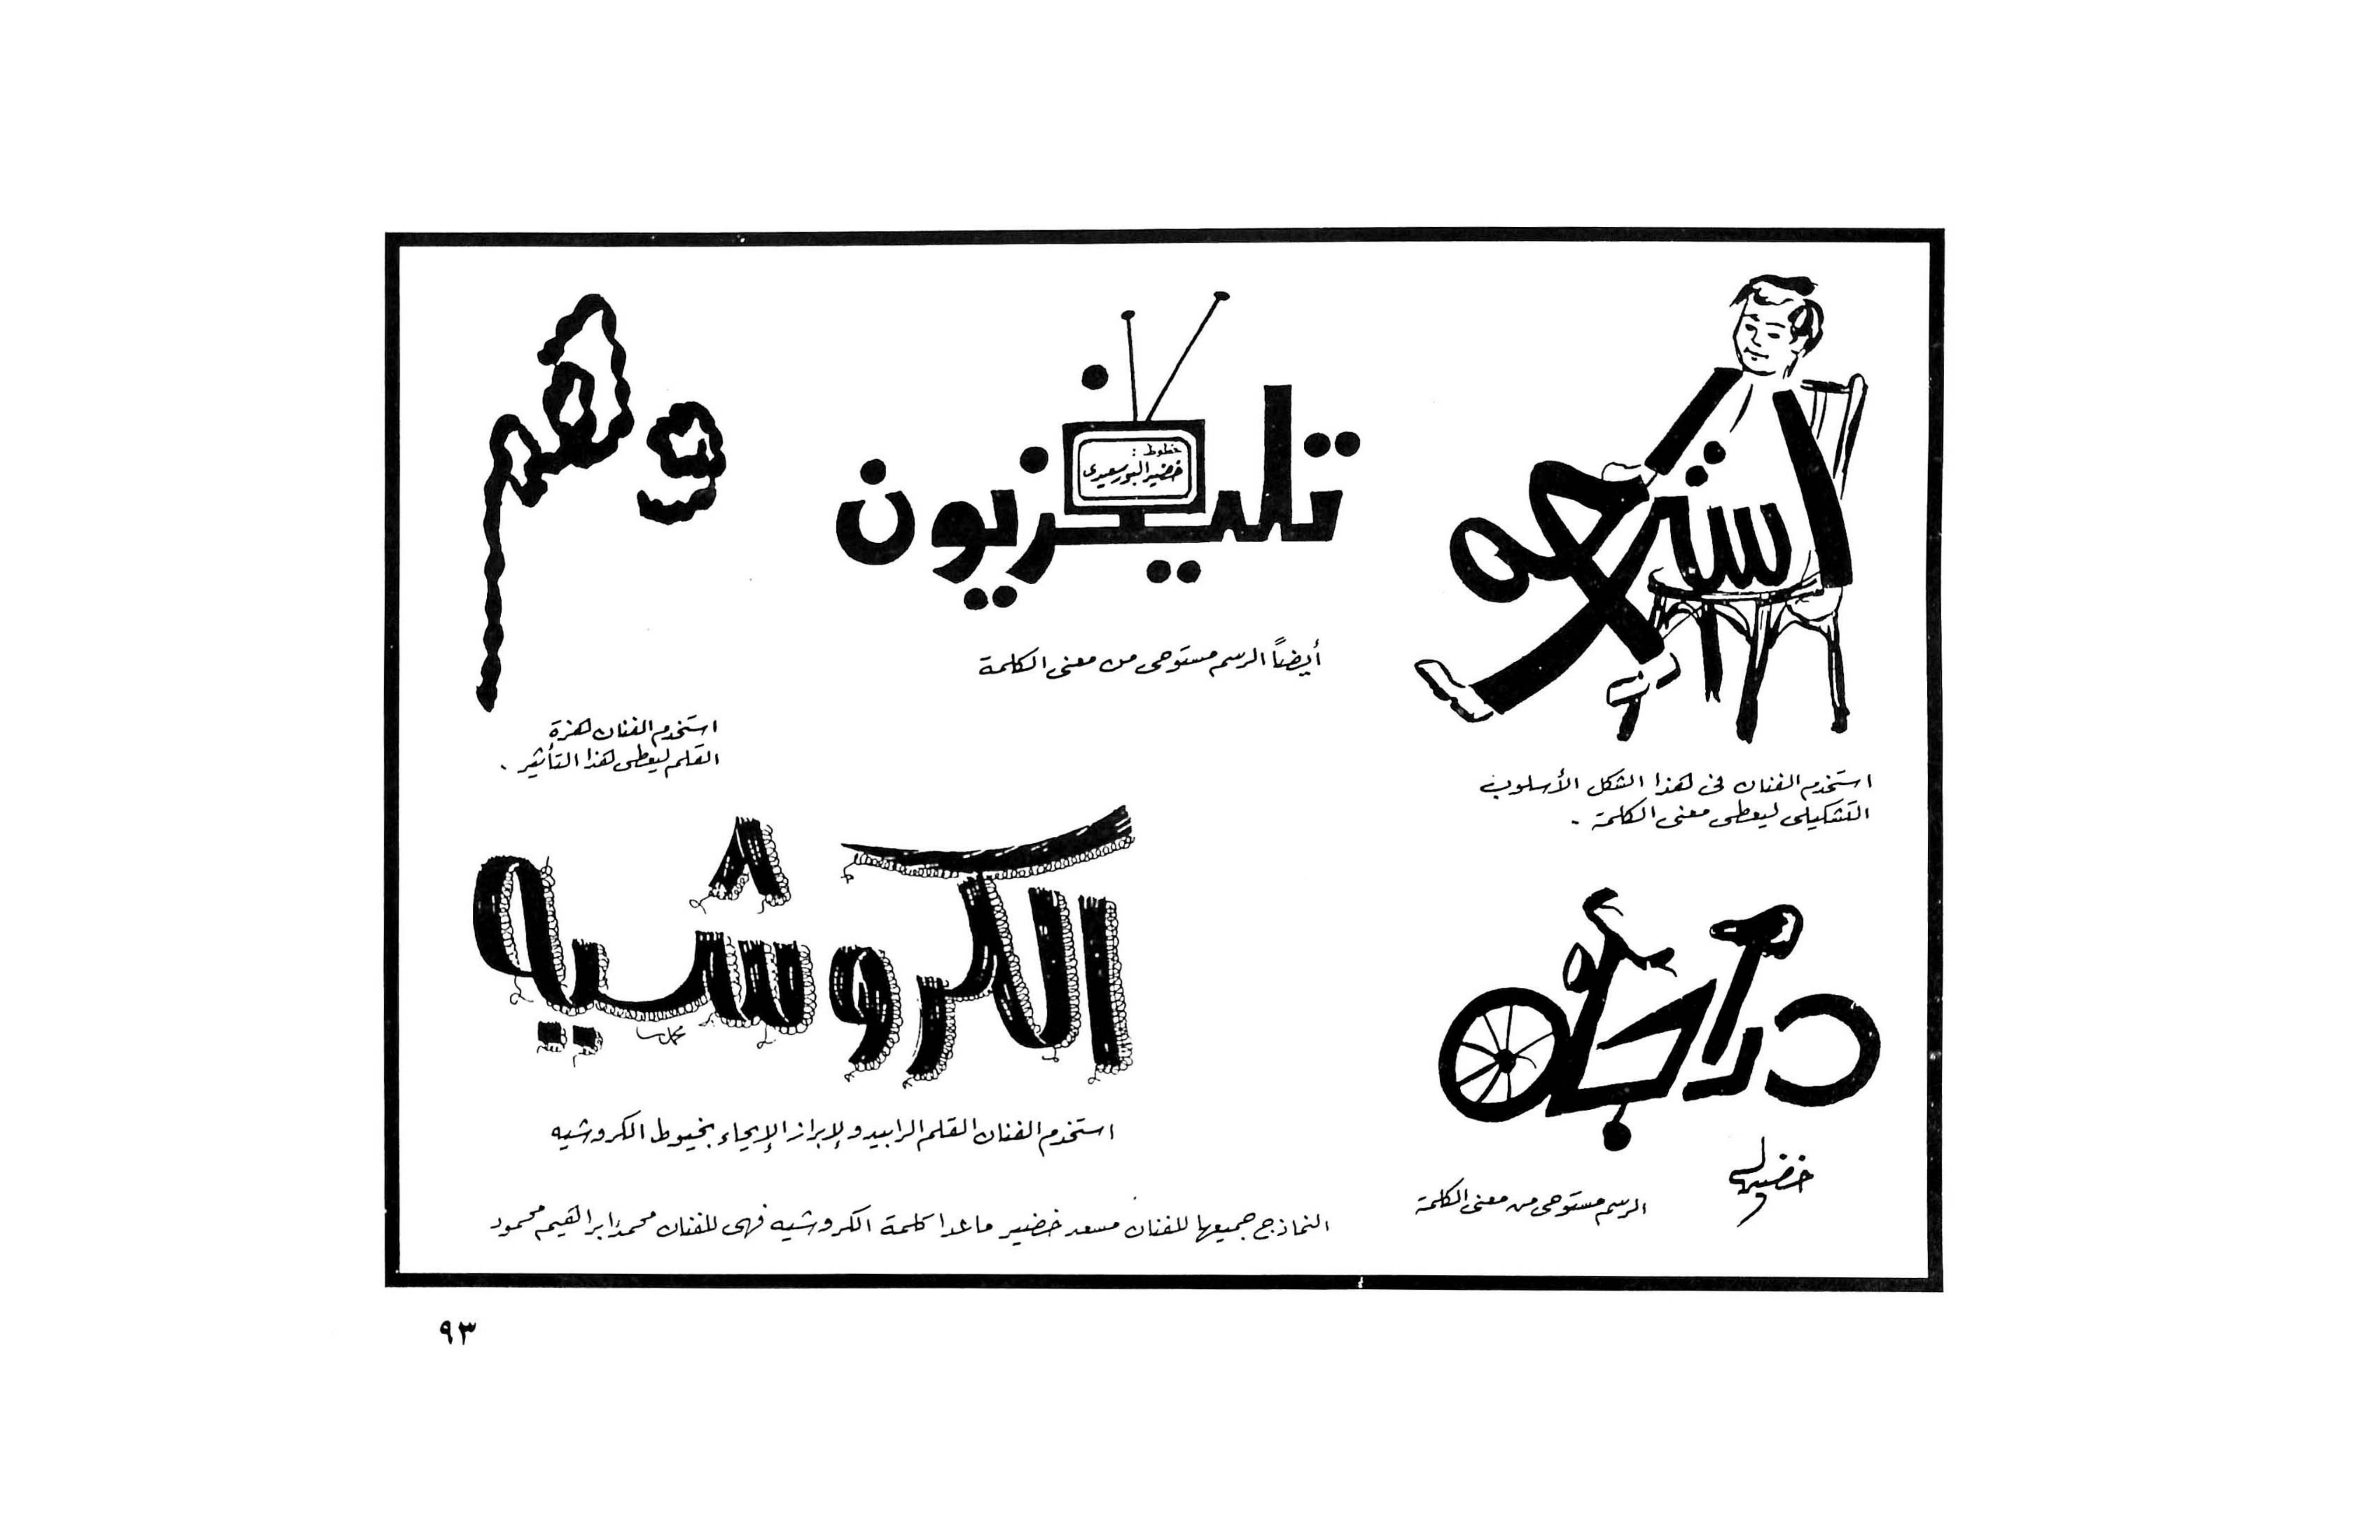 استرح
استخدم الفنان فى هذا الشكل الأسلوب
التشكيلى ليعطى معنى الكلمة .
تليفزيون
خطوط :
خضير البورسعيدى
أيضاً الرسم مستوحى من معنى الكلمة
وهم
استخدم الفنان هزة
القلم ليعطى هذا التأثير .
دراجة
خضير
الرسم مستوحى من معنى الكلمة
الكروشيه
محمد
استخدم الفنان القلم الرابيدو لإبراز الإيحاء بخيوط الكروشيه
النماذج جميعها للفنان مسعد خضير ماعدا كلمة الكروشيه فهى للفنان محمد إبراهيم محمود
٩٣